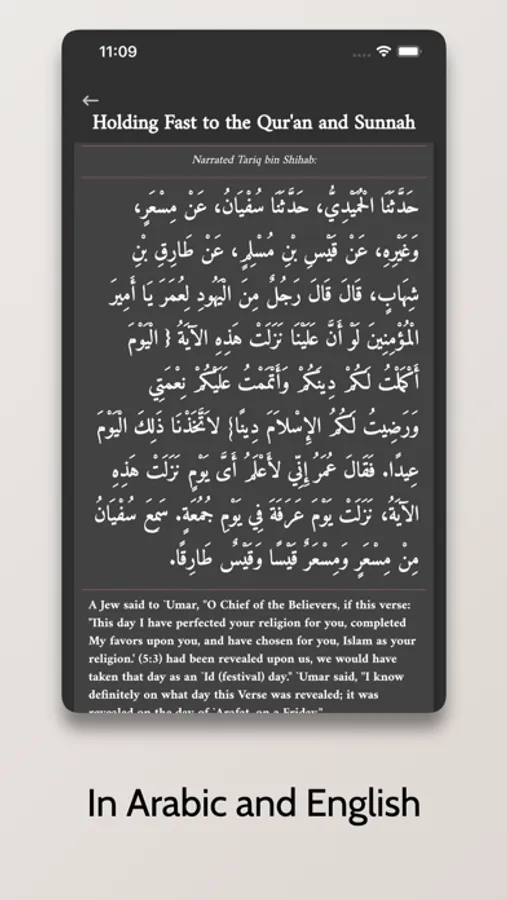 11:09
Holding Fast to the Qur'an and Sunnah
Narrated Tariq bin Shihab:
حَدَّثَنَا الْحُمَيْدِيُّ، حَدَّثَنَا سُفْيَانُ، عَنْ مِسْعَرٍ،
وَغَيْرِهِ، عَنْ قَيْسِ بْنِ مُسْلِمٍ، عَنْ طَارِقِ بْنِ
شِهَابٍ، قَالَ قَالَ رَجُلٌ مِنَ الْيَهُودِ لِعُمَرَ يَا أَمِيرَ
الْمُؤْمِنِينَ لَوْ أَنَّ عَلَيْنَا نَزَلَتْ هَذِهِ الآيَةُ {الْيَوْمَ
أَكْمَلْتُ لَكُمْ دِينَكُمْ وَأَتْمَمْتُ عَلَيْكُمْ نِعْمَتِي
وَرَضِيتُ لَكُمُ الإِسْلاَمَ دِينًا} لاَتَّخَذْنَا ذَلِكَ الْيَوْمَ
عِيدًا. فَقَالَ عُمَرُ إِنِّي لأَعْلَمُ أَىَّ يَوْمٍ نَزَلَتْ هَذِهِ
الآيَةُ، نَزَلَتْ يَوْمَ عَرَفَةَ فِي يَوْمِ جُمُعَةٍ. سَمِعَ سُفْيَانُ
مِنْ مِسْعَرٍ وَمِسْعَرٌ قَيْسًا وَقَيْسٌ طَارِقًا.
A Jew said to `Umar, "O Chief of the Believers, if this verse:
'This day I have perfected your religion for you, completed
My favors upon you, and have chosen for you, Islam as your
religion.' (5:3) had been revealed upon us, we would have
taken that day as an `Id (festival) day." `Umar said, "I know
definitely on what day this Verse was revealed; it was
revealed on the day of `Arafat, on a Friday."
In Arabic and English